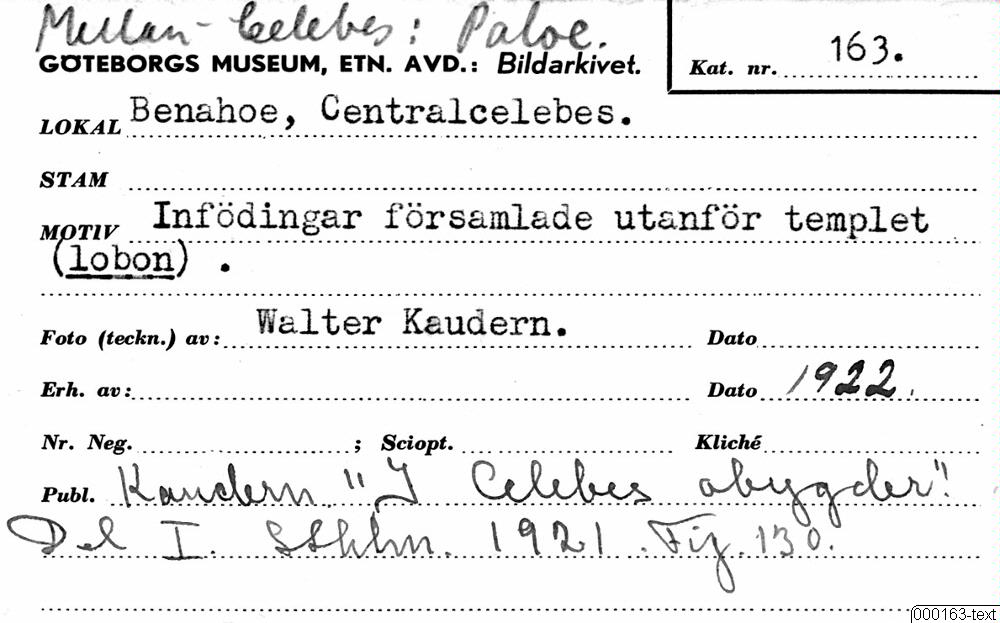 Mellan-Celebes: Paloe.
GÖTEBORGS MUSEUM, ETN. AVD.: Bildarkivet.
Kat. nr. 163.
LOKAL Benahoe, Centralcelebes.
STAM
MOTIV Infödingar församlade utanför templet
(lobon) .
Foto (teckn.) av: Walter Kaudern. Dato
Erh. av: Dato 1922.
Nr. Neg. ; Sciopt. Kliché
Publ. Kaudern "I Celebes obygder".
Del I. Sthlm. 1921. Fig. 130.
000163-text